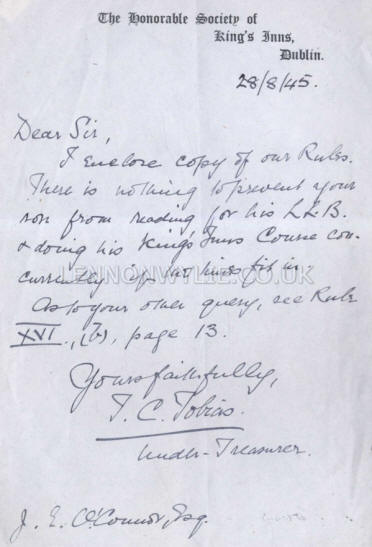 The Honorable Society of
King's Inns,
Dublin.
28/8/45.
Dear Sir,
I enclose copy of our Rules.
There is nothing to prevent your
son from reading for his LLB.
& doing his King's Inns Course con-
currently if his times fit in
As to your other query, see Rule
XVI., (b), page 13.
Yours faithfully,
T. C. Tobias.
Under-Treasurer.
J. E. O'Connor, Esq.
LENNONWYLIE.CO.UK